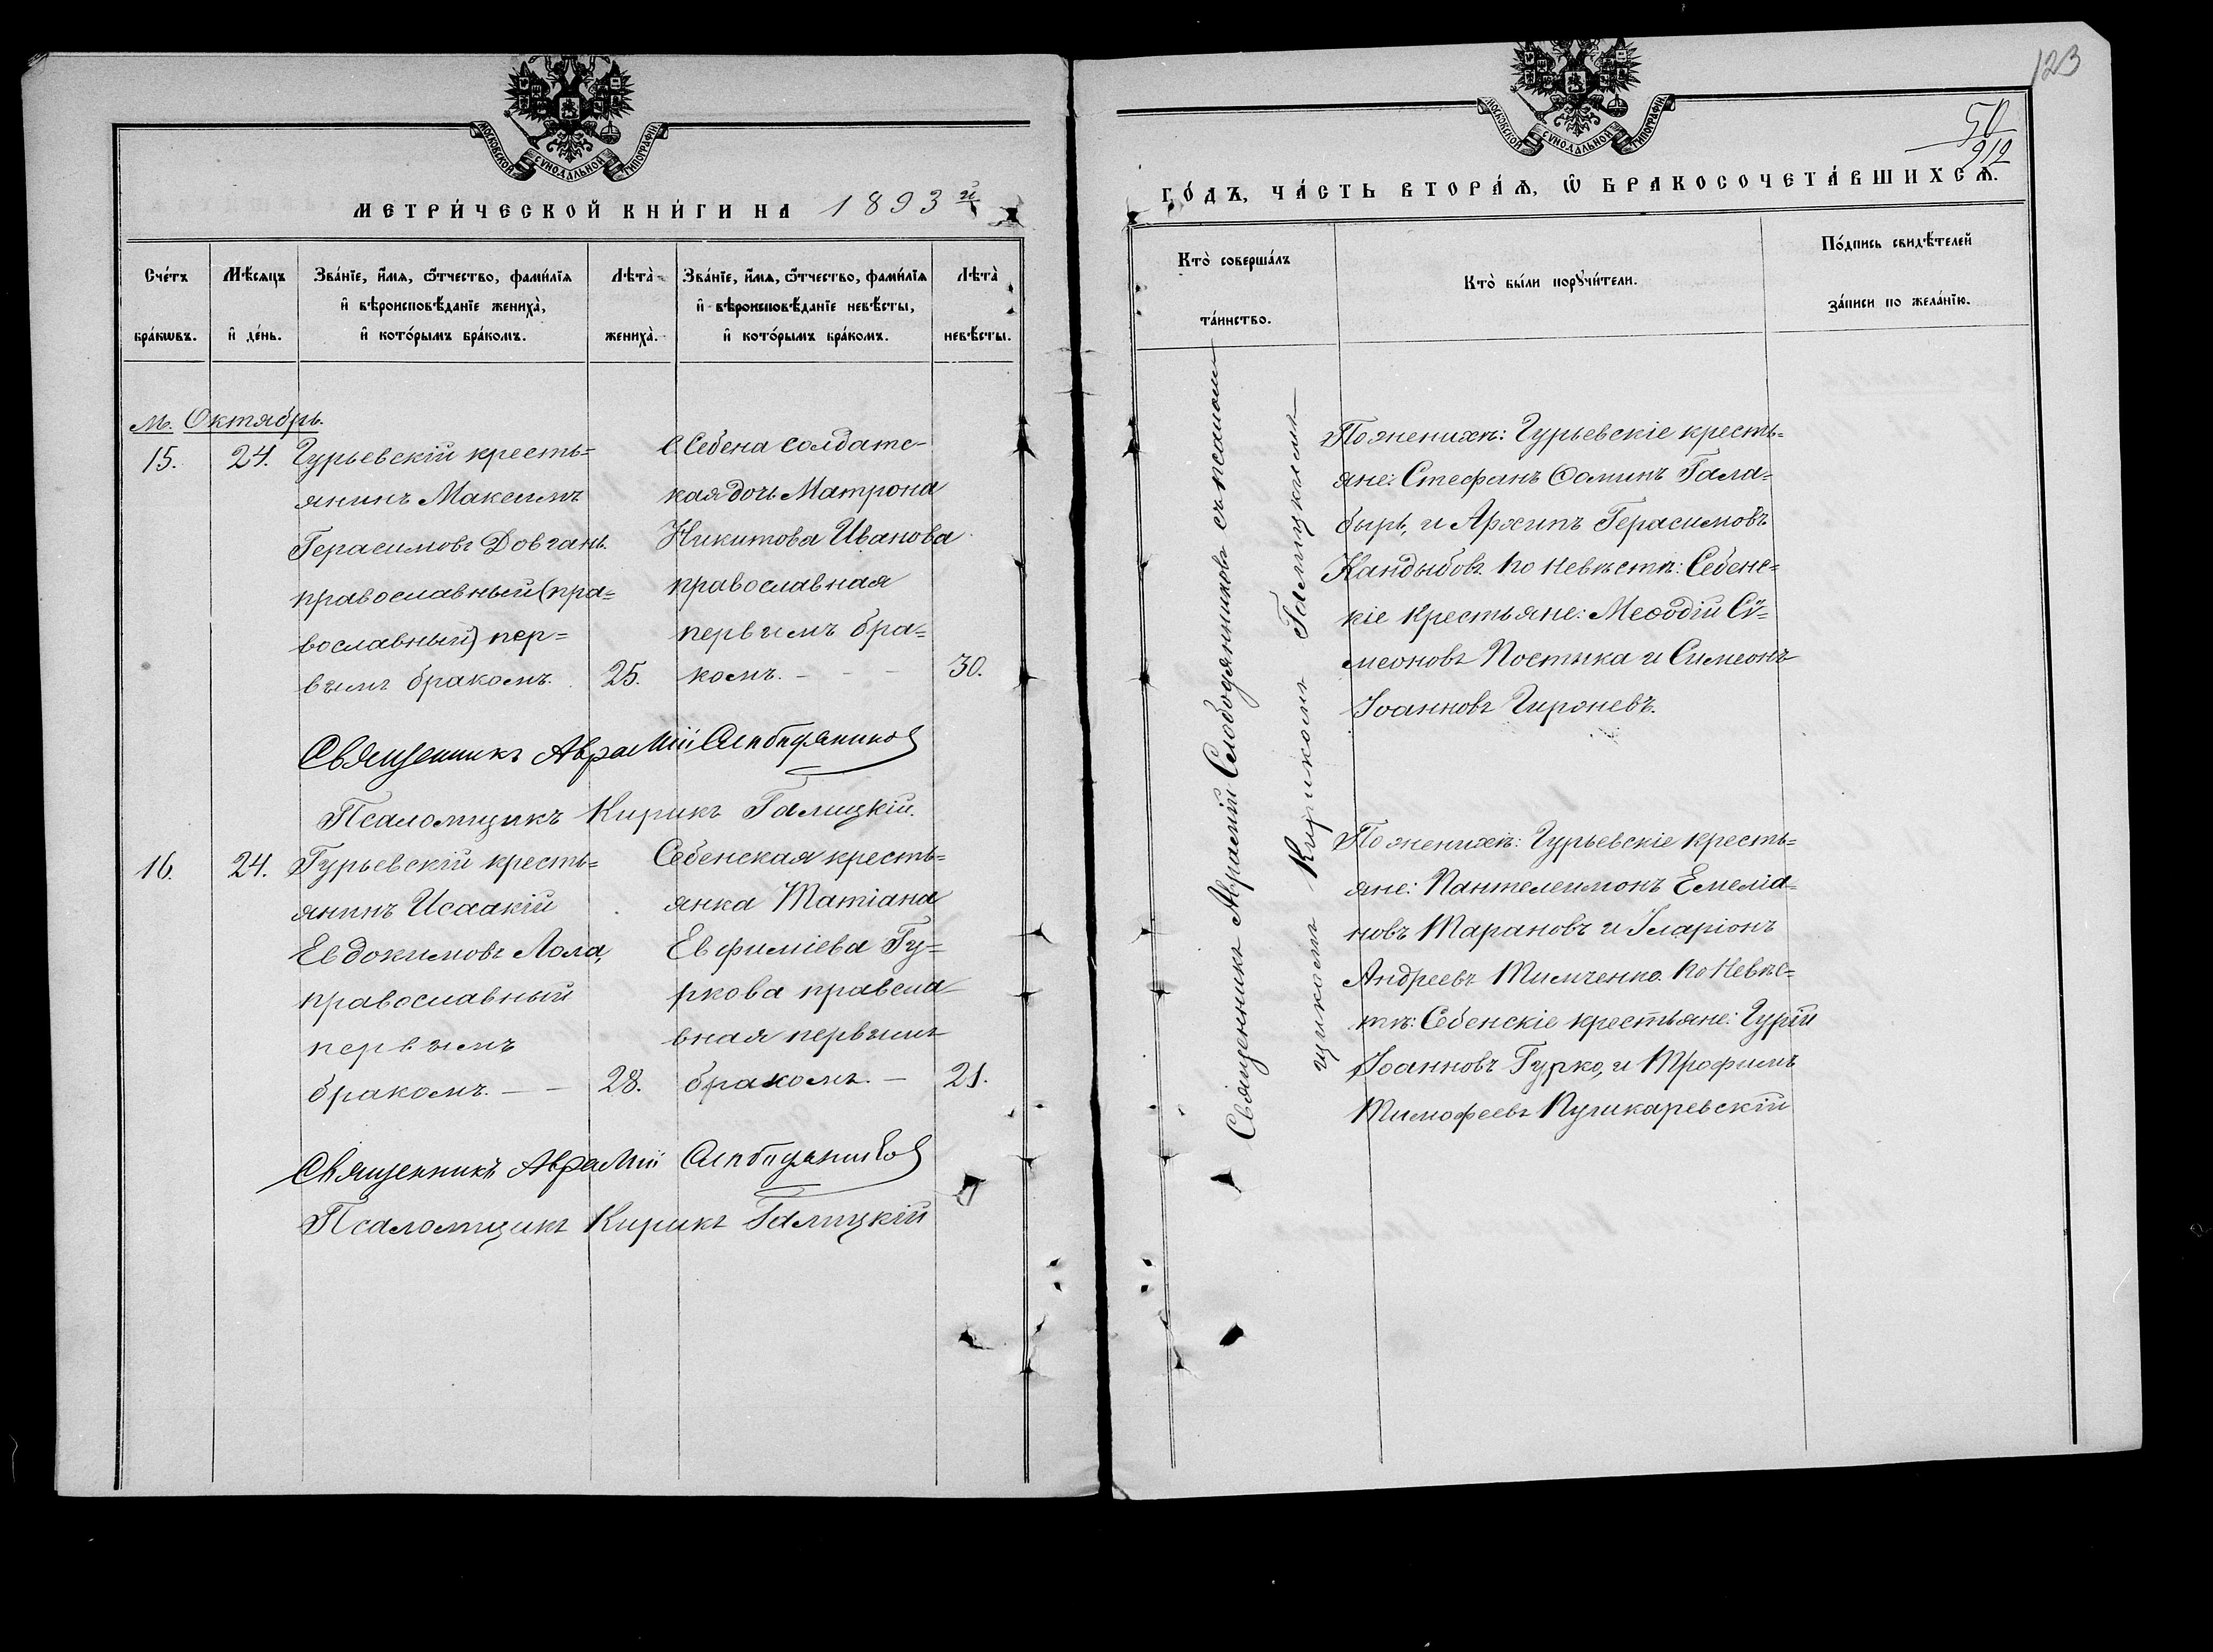 МОСКОВСКОЙ СѴНОДАЛЬНОЙ ТИПОГРАФІИ
МЕТРИ́ЧЕСКОЙ КНИ́ГИ НА 1893 й
Сче́тъ бра́кѡвъ.
Мѣ́сяцъ и҆ де́нь.
Зва́нїе, и҆́мѧ, ѻ҆́тчество, фами́лїѧ
и҆ вѣроисповѣ́данїе жениха̀,
и҆ кото́рымъ бра́комъ.
Лѣта̀ жениха̀.
Зва́нїе, и҆́мѧ, ѻ҆́тчество, фами́лїѧ
и҆ вѣроисповѣ́данїе невѣ́сты,
и҆ кото́рымъ бра́комъ.
Лѣта̀ невѣ́сты.
М. Октябрь.
15.
24.
Гурьевскій кресть=
янинъ Максимъ
Герасимовъ Довгань.
православный (пра=
вославный) пер=
вымъ бракомъ.
25.
С. Себена солдатс-
кая дочь Матрона
Никитова Иванова
православная
первымъ бра=
комъ. - - -
30.
Священникъ Аврамій Слободяниковъ
Псаломщикъ Кирикъ Галицкій.
16.
24.
Гурьевскій кресть=
янинъ Исаакій
Евдокимовъ Лола,
православный
первымъ
бракомъ. — —
28.
Себенская кресть=
янка Татіана
Евфиміева Гу=
ркова правсла
вная первымъ
бракомъ. —
21.
Священникъ Аврамій Слободяниковъ
Псаломщикъ Кирикъ Галицкій
123
50
912
МОСКОВСКОЙ СѴНОДАЛЬНОЙ ТИПОГРАФІИ
ГО́ДЪ, ЧА́СТЬ ВТОРА́Ѧ, Ѡ҆ БРАКОСОЧЕТА́ВШИХСѦ.
Кто̀ соверша́лъ
та́инство.
Кто̀ бы́ли порꙋчи́тели.
По́дпись свидѣ́телей
за́писи по жела́нїю.
Священникъ Аврамій Слободянниковъ съ псалом
щикомъ Кирикомъ Галицкимъ
По женихѣ: Гурьевскіе кресть=
яне: Стефанъ Ѳоминъ Гала=
бырь, и Архипъ Герасимовъ
Кандыбовъ. По невѣстѣ: Себенс=
кіе крестьяне: Меѳодій Сѵ=
меоновъ Постика и Симеонъ
Іоанновъ Чироневъ.
По женихѣ: Гурьевскіе кресть=
яне: Пантелеимонъ Емеліа=
новъ Тарановъ и Іларіонъ
Андреевъ Тимченко. По невѣс=
тѣ: Себенскіе крестьяне: Гурій
Іоанновъ Гурко, и Трофимъ
Тимофеевъ Пушкаревскій